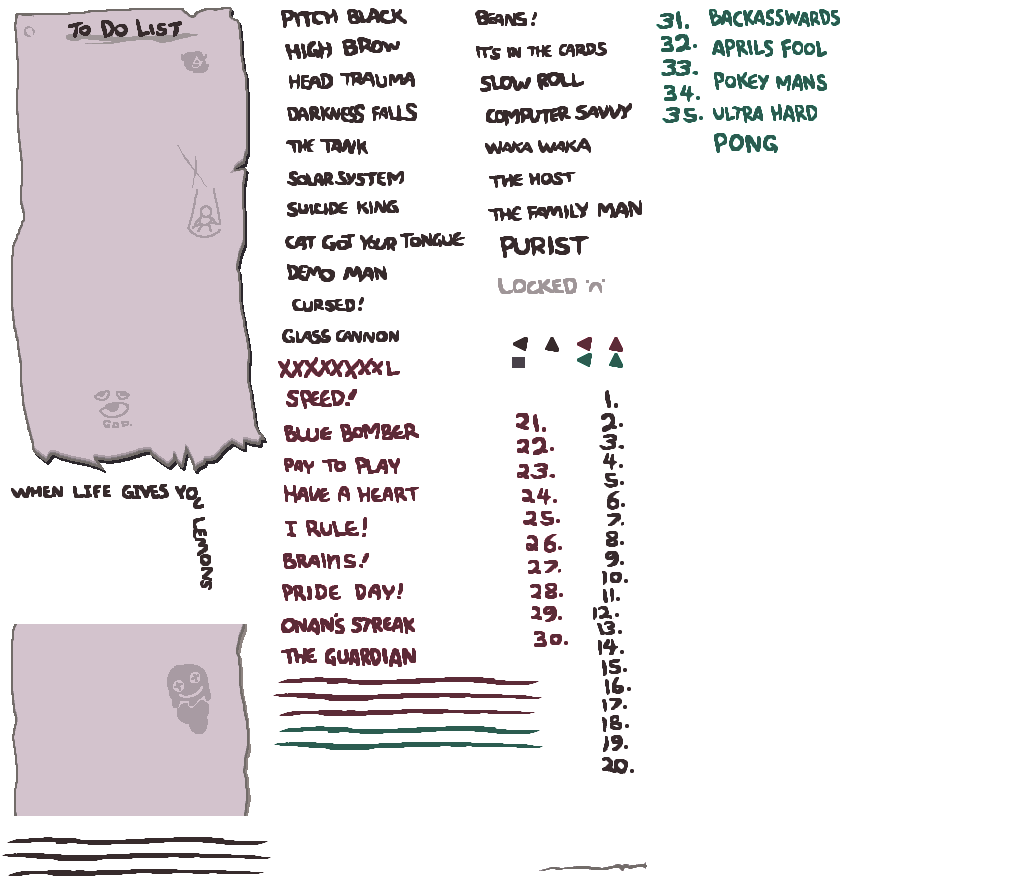 TO DO LIST
GOD.
WHEN LIFE GIVES YOU LEMONS
PITCH BLACK
HIGH BROW
HEAD TRAUMA
DARKNESS FALLS
THE TANK
SOLAR SYSTEM
SUICIDE KING
CAT GOT YOUR TONGUE
DEMO MAN
CURSED!
GLASS CANNON
XXXXXXXXL
SPEED!
BLUE BOMBER
PAY TO PLAY
HAVE A HEART
I RULE!
BRAINS!
PRIDE DAY!
ONAN'S STREAK
THE GUARDIAN
BEANS!
IT'S IN THE CARDS
SLOW ROLL
COMPUTER SAVVY
WAKA WAKA
THE HOST
THE FAMILY MAN
PURIST
LOCKED "n"
21.
22.
23.
24.
25.
26.
27.
28.
29.
30.
1.
2.
3.
4.
5.
6.
7.
8.
9.
10.
11.
12.
13.
14.
15.
16.
17.
18.
19.
20.
31.
32.
33.
34.
35.
BACKASSWARDS
APRILS FOOL
POKEY MANS
ULTRA HARD
PONG